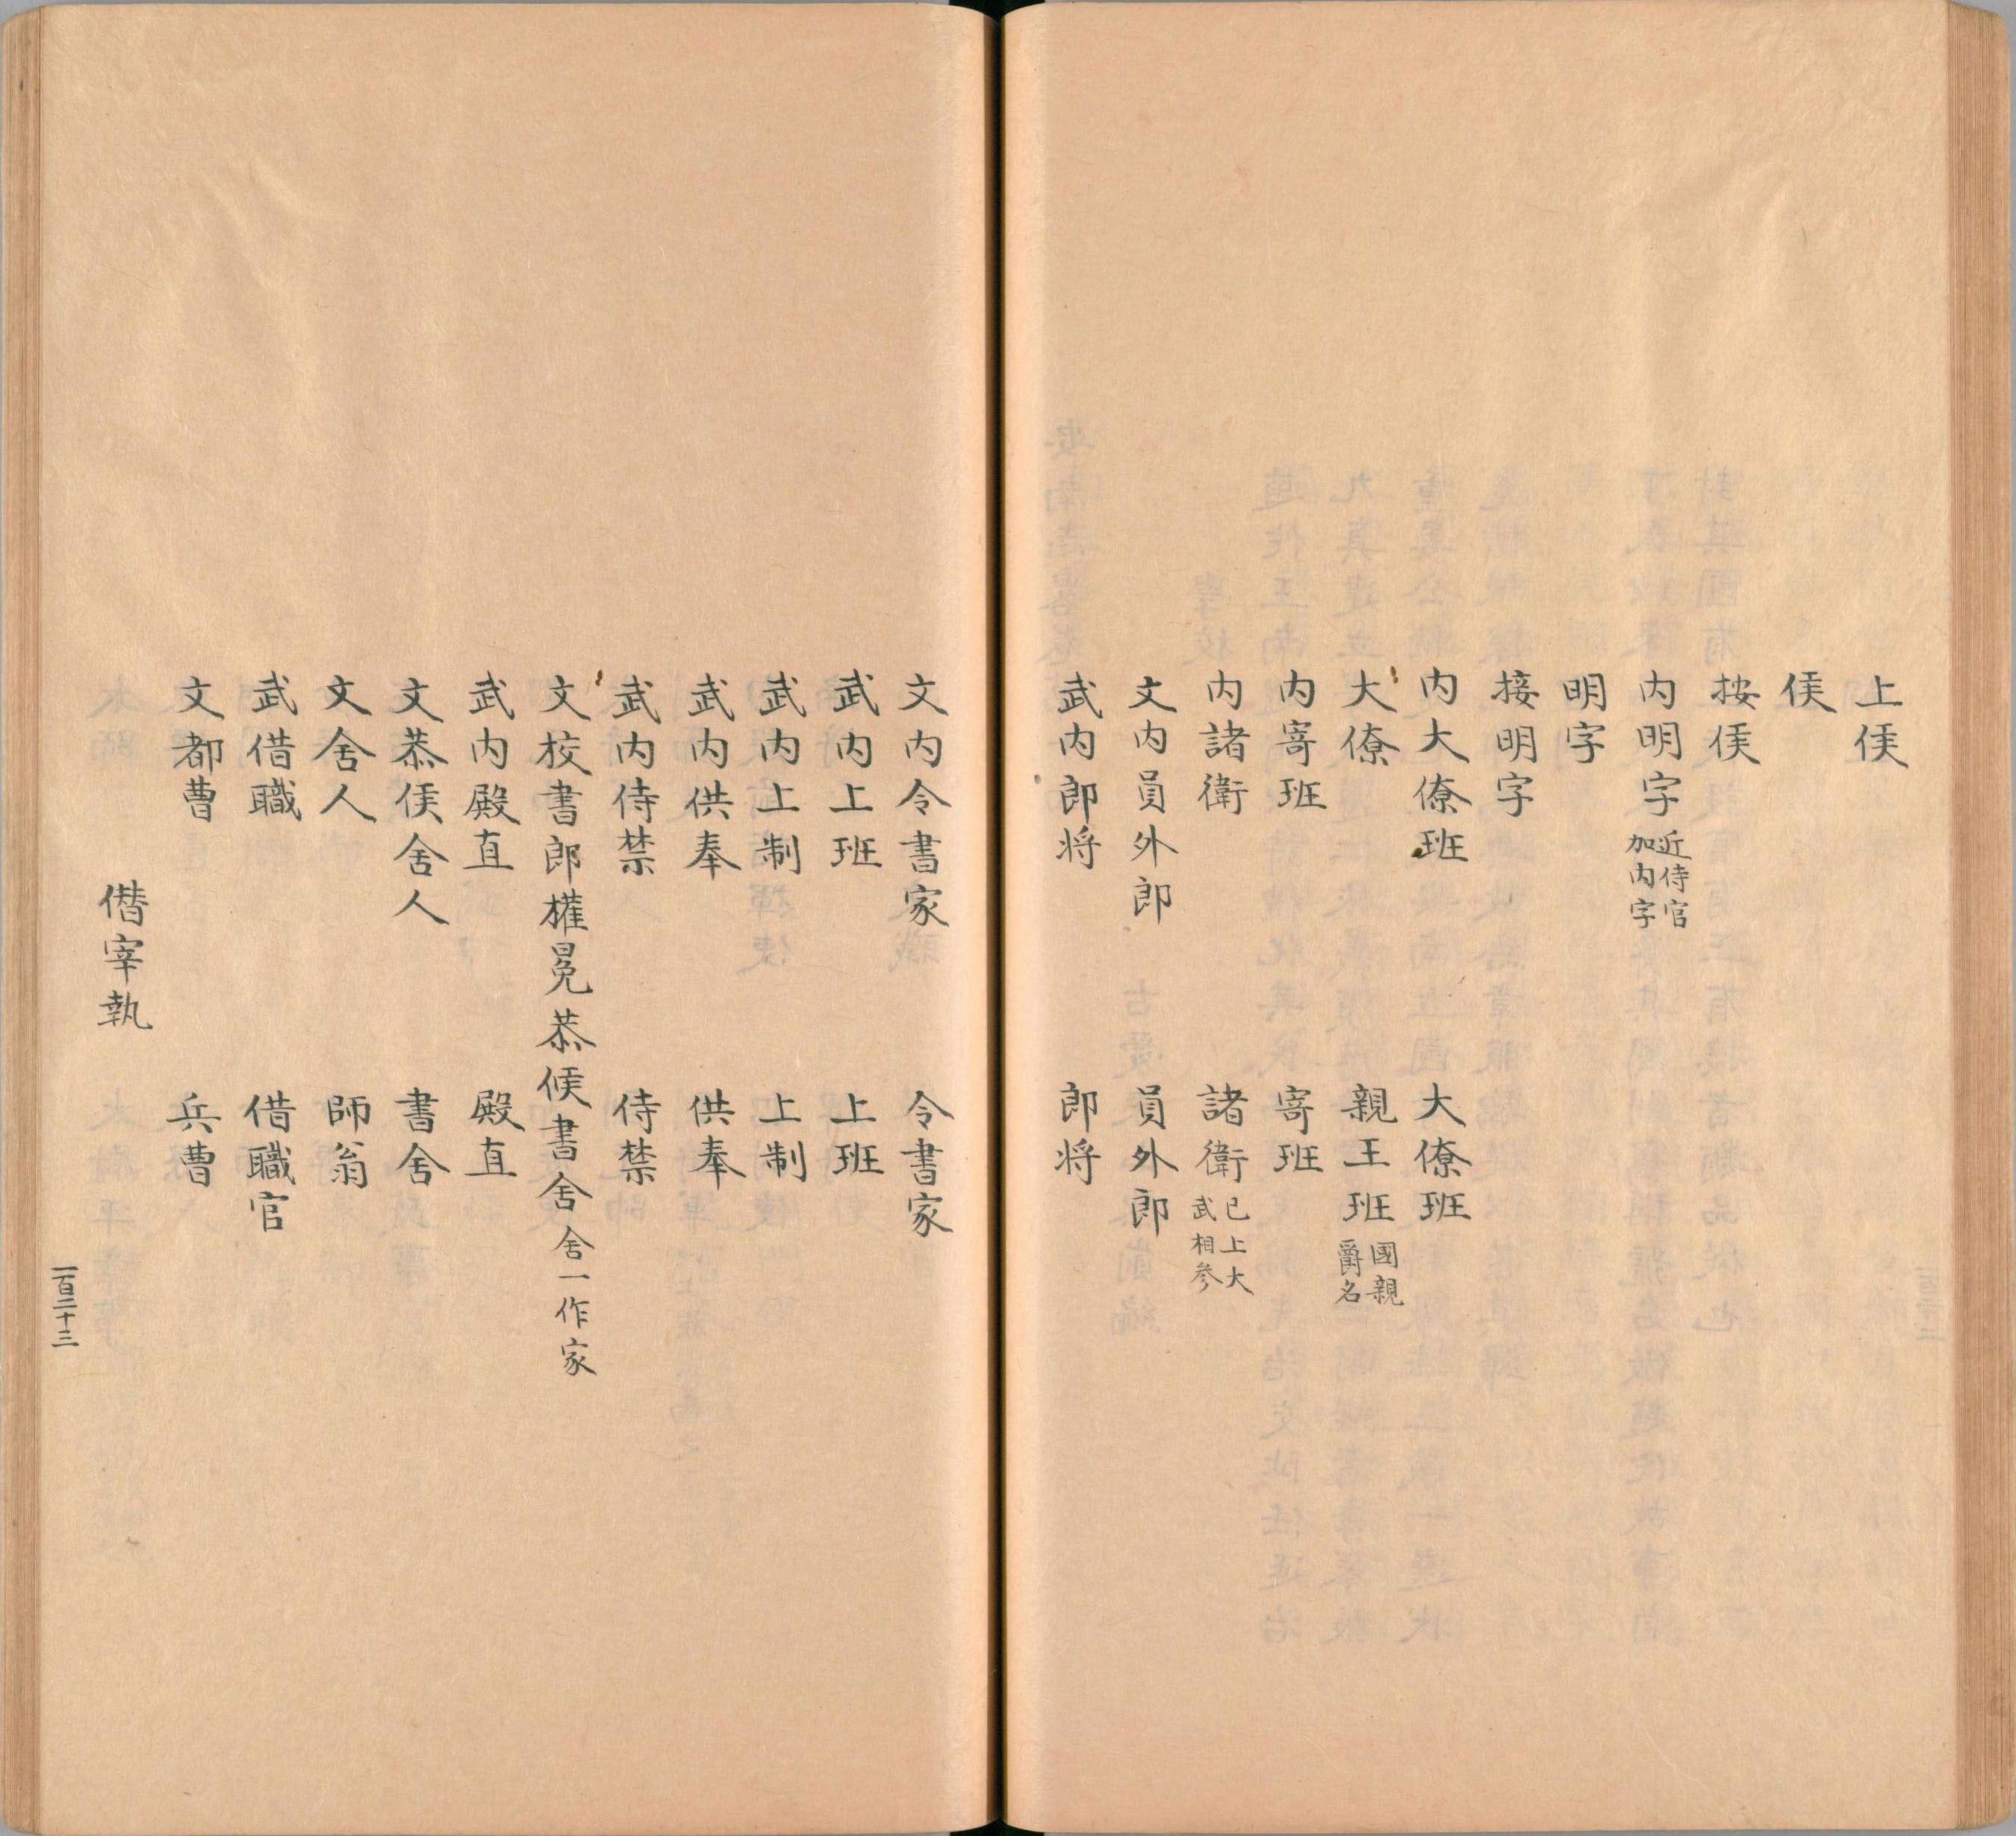 上侯
侯
按侯
内明字 近侍官加内字
明字
接明字
内大僚班 大僚班
大僚 親王班 國親爵名
内寄班 寄班
内諸衛 諸衛 已上大武相參
文内員外郎 員外郎
武内郎将 郎将
文内令書家 令書家
武内上班 上班
武内上制 上制
武内供奉 供奉
武内侍禁 侍禁
文校書郎權冕恭候書舍 舍一作家
武内殿直 殿直
文恭侯舍人 書舍
文舍人 師翁
武借職 借職官
文都曹 兵曹
僭宰執
一百二十三